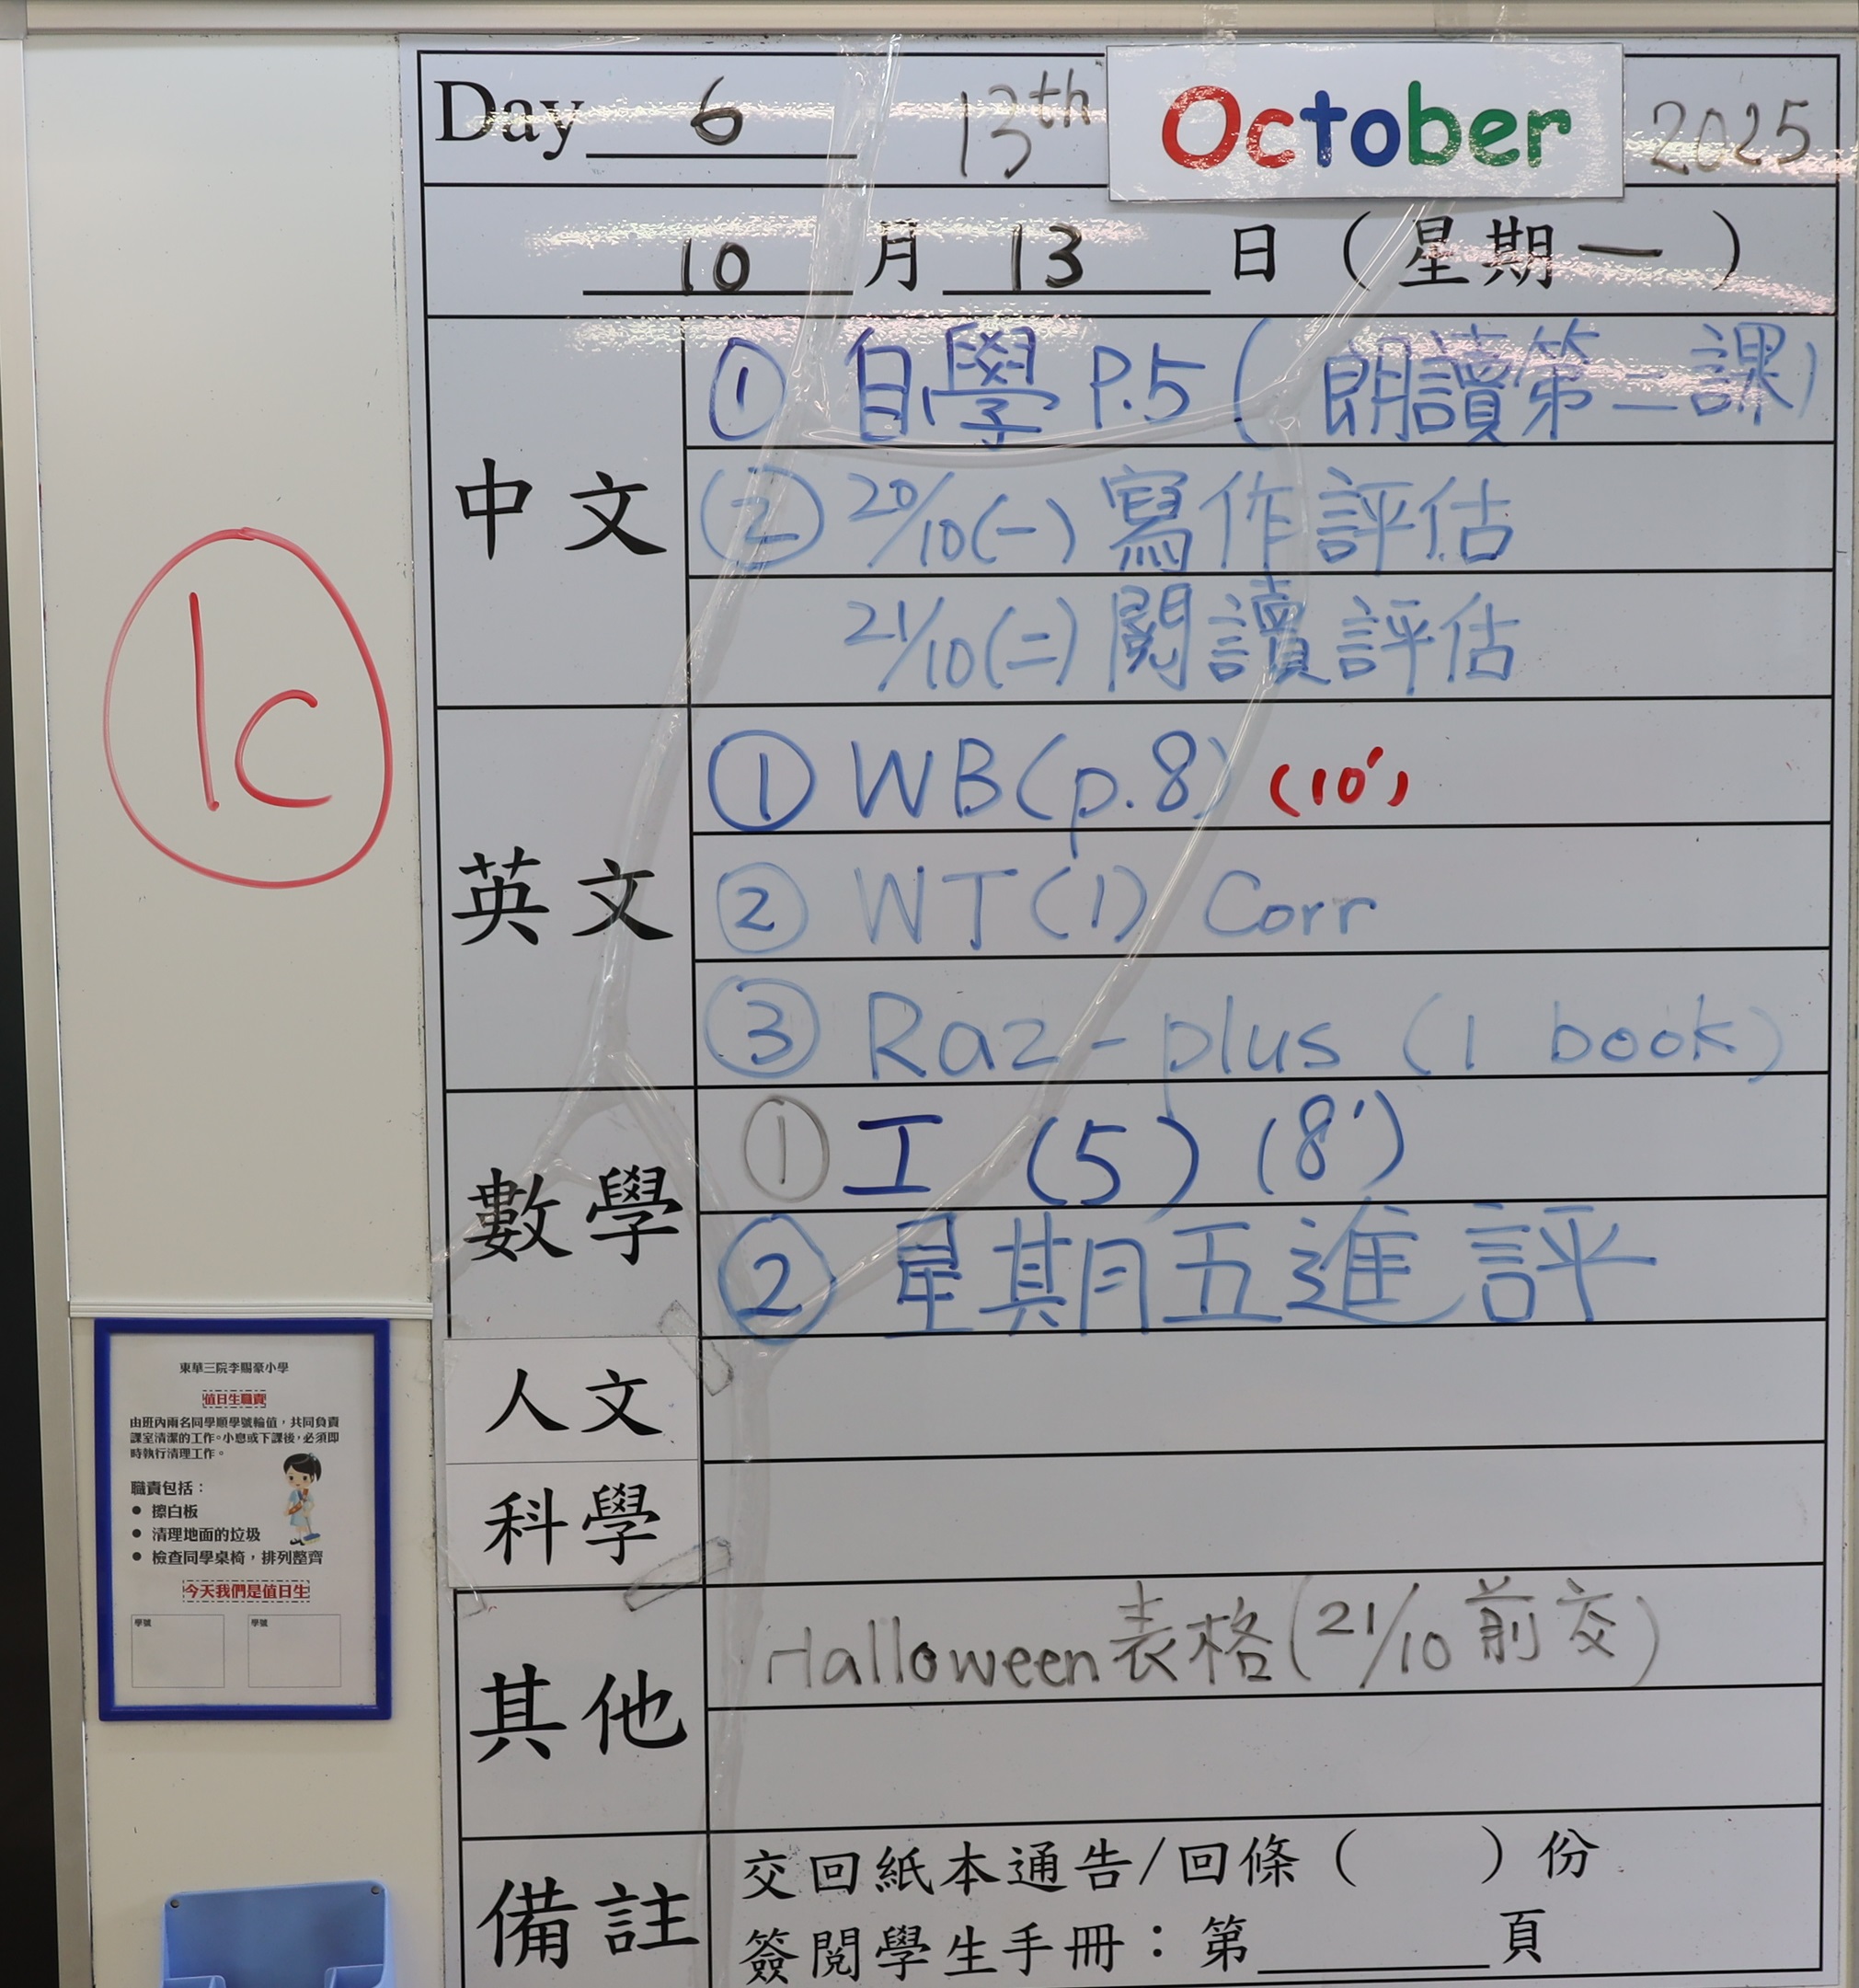 Day 6 13th October 2025
10 月 13 日（星期一）
中文
① 自學 P.5 (朗讀第二課)
② 20/10(一) 寫作評估
21/10(二) 閱讀評估
1c
英文
① WB(p.8) (10')
② WT(1) Corr
③ Raz-plus (1 book)
數學
① 工 (5) (8')
② 星期五進評
人文
科學
其他
Halloween表格(21/10 前交)
備註
交回紙本通告/回條（　　）份
簽閱學生手冊：第______頁
東華三院李賜豪小學
值日生職責
由班內兩名同學順學號輪值，共同負責
課室清潔的工作。小息或下課後，必須即
時執行清理工作。
職責包括：
● 擦白板
● 清理地面的垃圾
● 檢查同學桌椅，排列整齊
今天我們是值日生
學號 學號